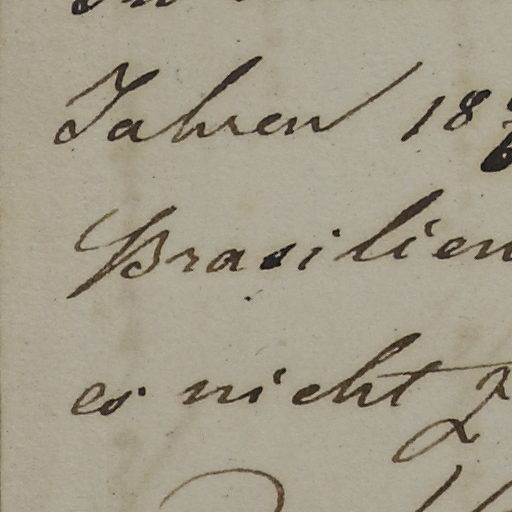 Jahren 18
Brasilien
es nicht